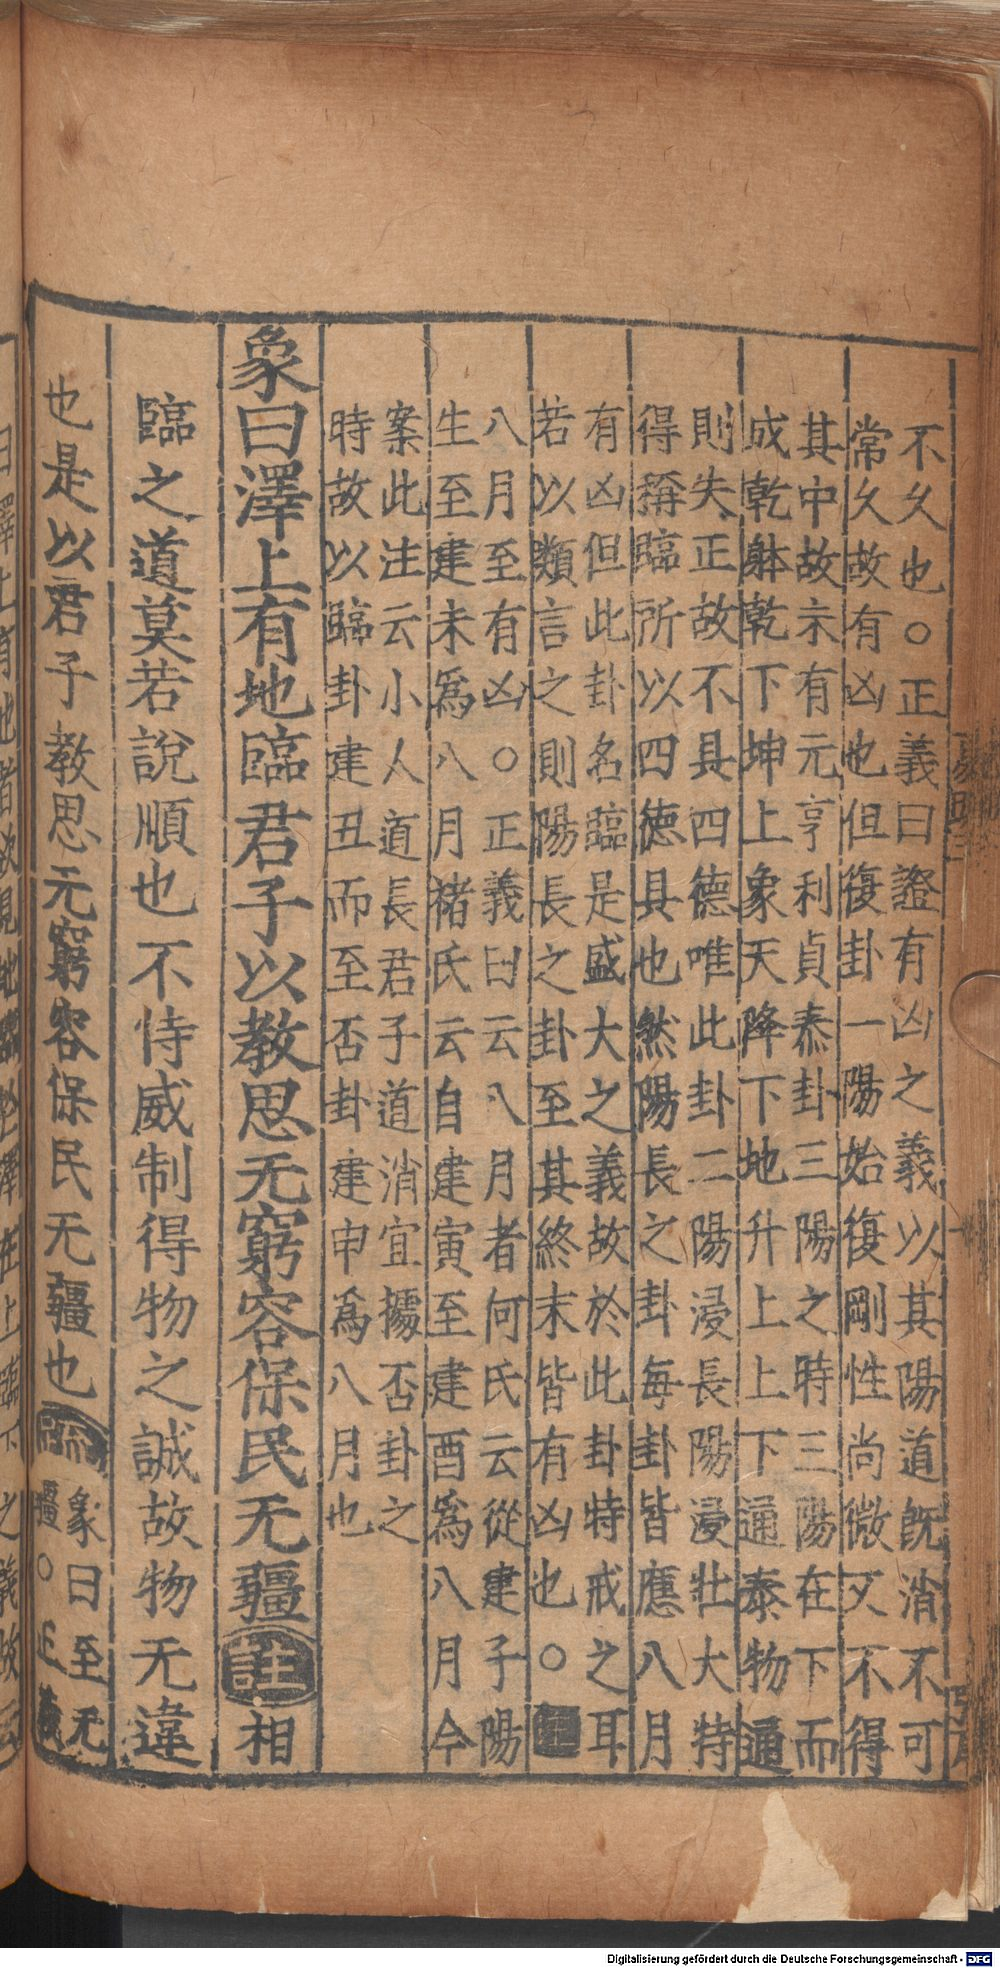 不久也○正義曰證有凶之義以其陽道既消不可
常久故有凶也但復卦一陽始復剛性尚微又不得
其中故未有元亨利貞泰卦三陽之時三陽在下而
成乾躰乾下坤上象天降下地升上上下通泰物通
則失正故不具四德唯此卦二陽浸長陽浸壯大特
得稱臨所以四德具也然陽長之卦每卦皆應八月
有凶但此卦名臨是盛大之義故於此卦特戒之耳
若以類言之則陽長之卦至其終末皆有凶也○
八月至有凶○正義曰云八月者何氏云從建子陽
生至建未爲八月褚氏云自建寅至建酉爲八月今
案此注云小人道長君子道消宜據否卦之
時故以臨卦建丑而至否卦建申爲八月也
象曰澤上有地臨君子以教思无窮容保民无疆註相
臨之道莫若說順也不恃威制得物之誠故物无違
也是以君子教思无窮容保民无疆也疏象曰至无
疆○正義
Digitalisierung gefördert durch die Deutsche Forschungsgemeinschaft - DFG